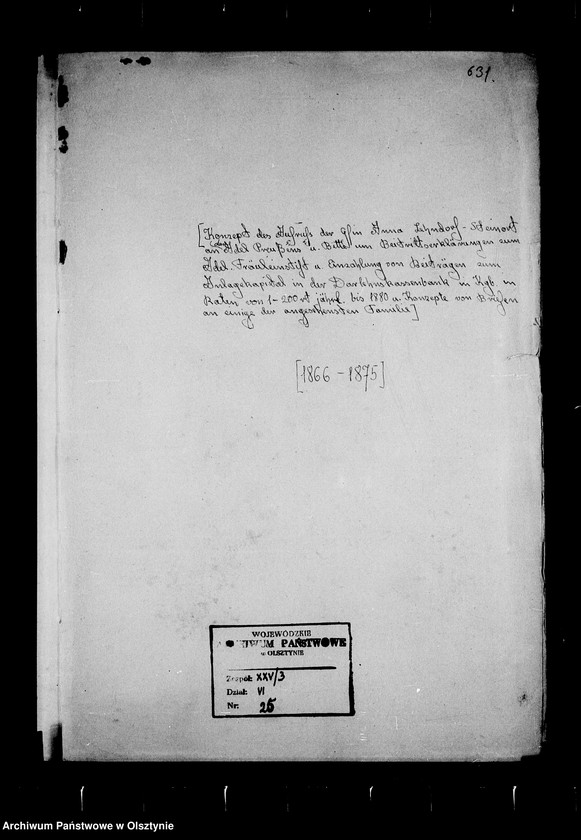 631.
[Konzept des Aufrufs der Gfin Anna Lehndorf-Steinort
an Adel Preußens u. Bitte um Beitrittserklärungen zum
Adel. Fräuleinstift u. Anzahlung von Beiträgen zum
Anlagekapital in der Darlehnskassenbank in Kgb. in
Raten von 1-200 rt jährl. bis 1880 u. Konzepte von Briefen
an einige der angesehensten Familie]
[1866-1875]
WOJEWÓDZKIE
ARCHIWUM PAŃSTWOWE
w OLSZTYNIE
Zespół: XXV/3
Dział: VI
Nr. 25
Archiwum Państwowe w Olsztynie